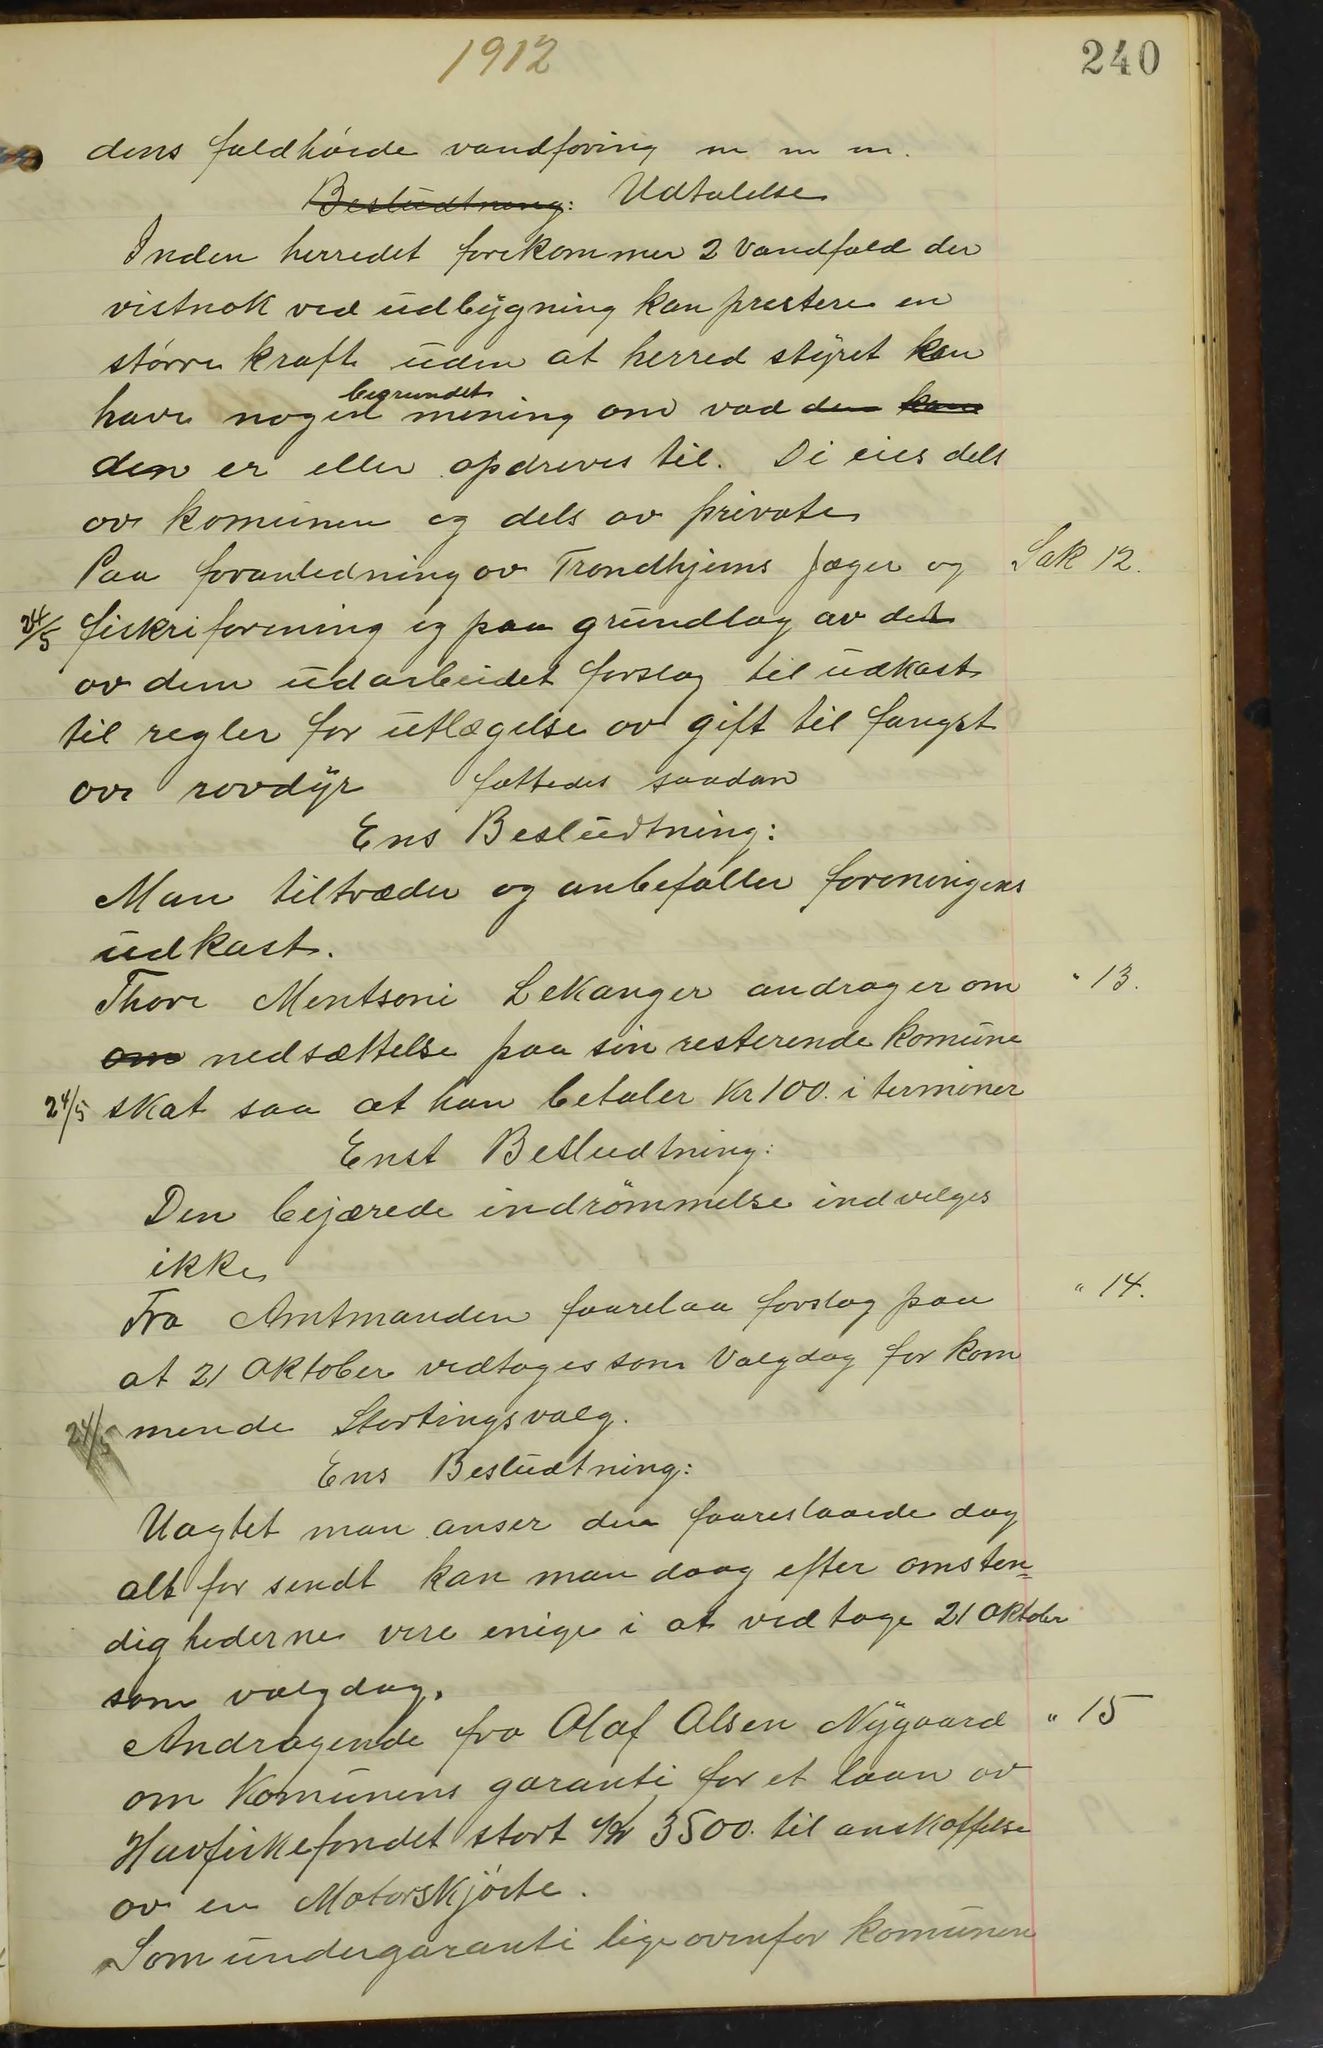 1912
240
dens faldhøide vandføring m m m.
Besludtning: Udtalelse
Inden herredet forekommer 2 Vandfald der
vistnok ved udbygning kan prestere en
større kraft uden at herred styret kan
begrundet
have nogen mening om vad den kan
den er eller opdreves til. Di eies dels
av komunen og dels av private
Paa foranledning av Trondhjems Jæger og
Sak 12.
24/5 fiskeriforening og paa grundlag av det
av dem udarbeidet forslag til udkast
til regler for utlægelse av gift til fangst
av rovdyr fattedes saadan
Ens Besludtning:
Man tiltræder og anbefaller foreningens
udkast.
Thore Mentsoni Lekanger andrager om
" 13.
om nedsættelse paa sin resterende komune
24/5 skat saa at han betaler Kr 100. i terminer
Enst Besludtning:
Den bejærede indrömmelse indvilges
ikke
Fra Amtmanden faarelaa forslag paa
" 14.
at 21 Oktober vedtages som Valgdag for kom
24/5 mende Stortingsvalg.
Ens Besludtning:
Uagtet man anser den faareslaaede dag
alt for sendt kan man daag efter omsten=
dighederne vere enige i at vedtage 21 Oktober
som valgdag.
Andragende fra Olaf Olsen Nygaard
" 15
om Komunens garanti for et laan av
Havfiskefondet stort Kr 3500. til anskaffelse
av en Motorskjøite.
Som undergaranti ligeovenfor komunen